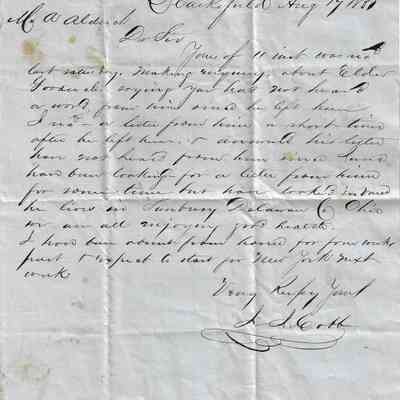 Blackford Aug 17 1851
Mr A Aldrich
Dr Sir
Yours of 11 inst was rec
last saturday, making enquiry about Elder
saying you has not heard
a word from him since he left here
I rec a letter from him a short time
after he left here, & answered his letter
have not heard from him since I
have been looking for a letter from him
for some time but have looked in vain
he lives in Sunbury Delaware C Ohio
we are all enjoying good health
I have been absent from home for four weeks
past & expect to start for New York next
week
Very Respy Yours
J. S. Cobb